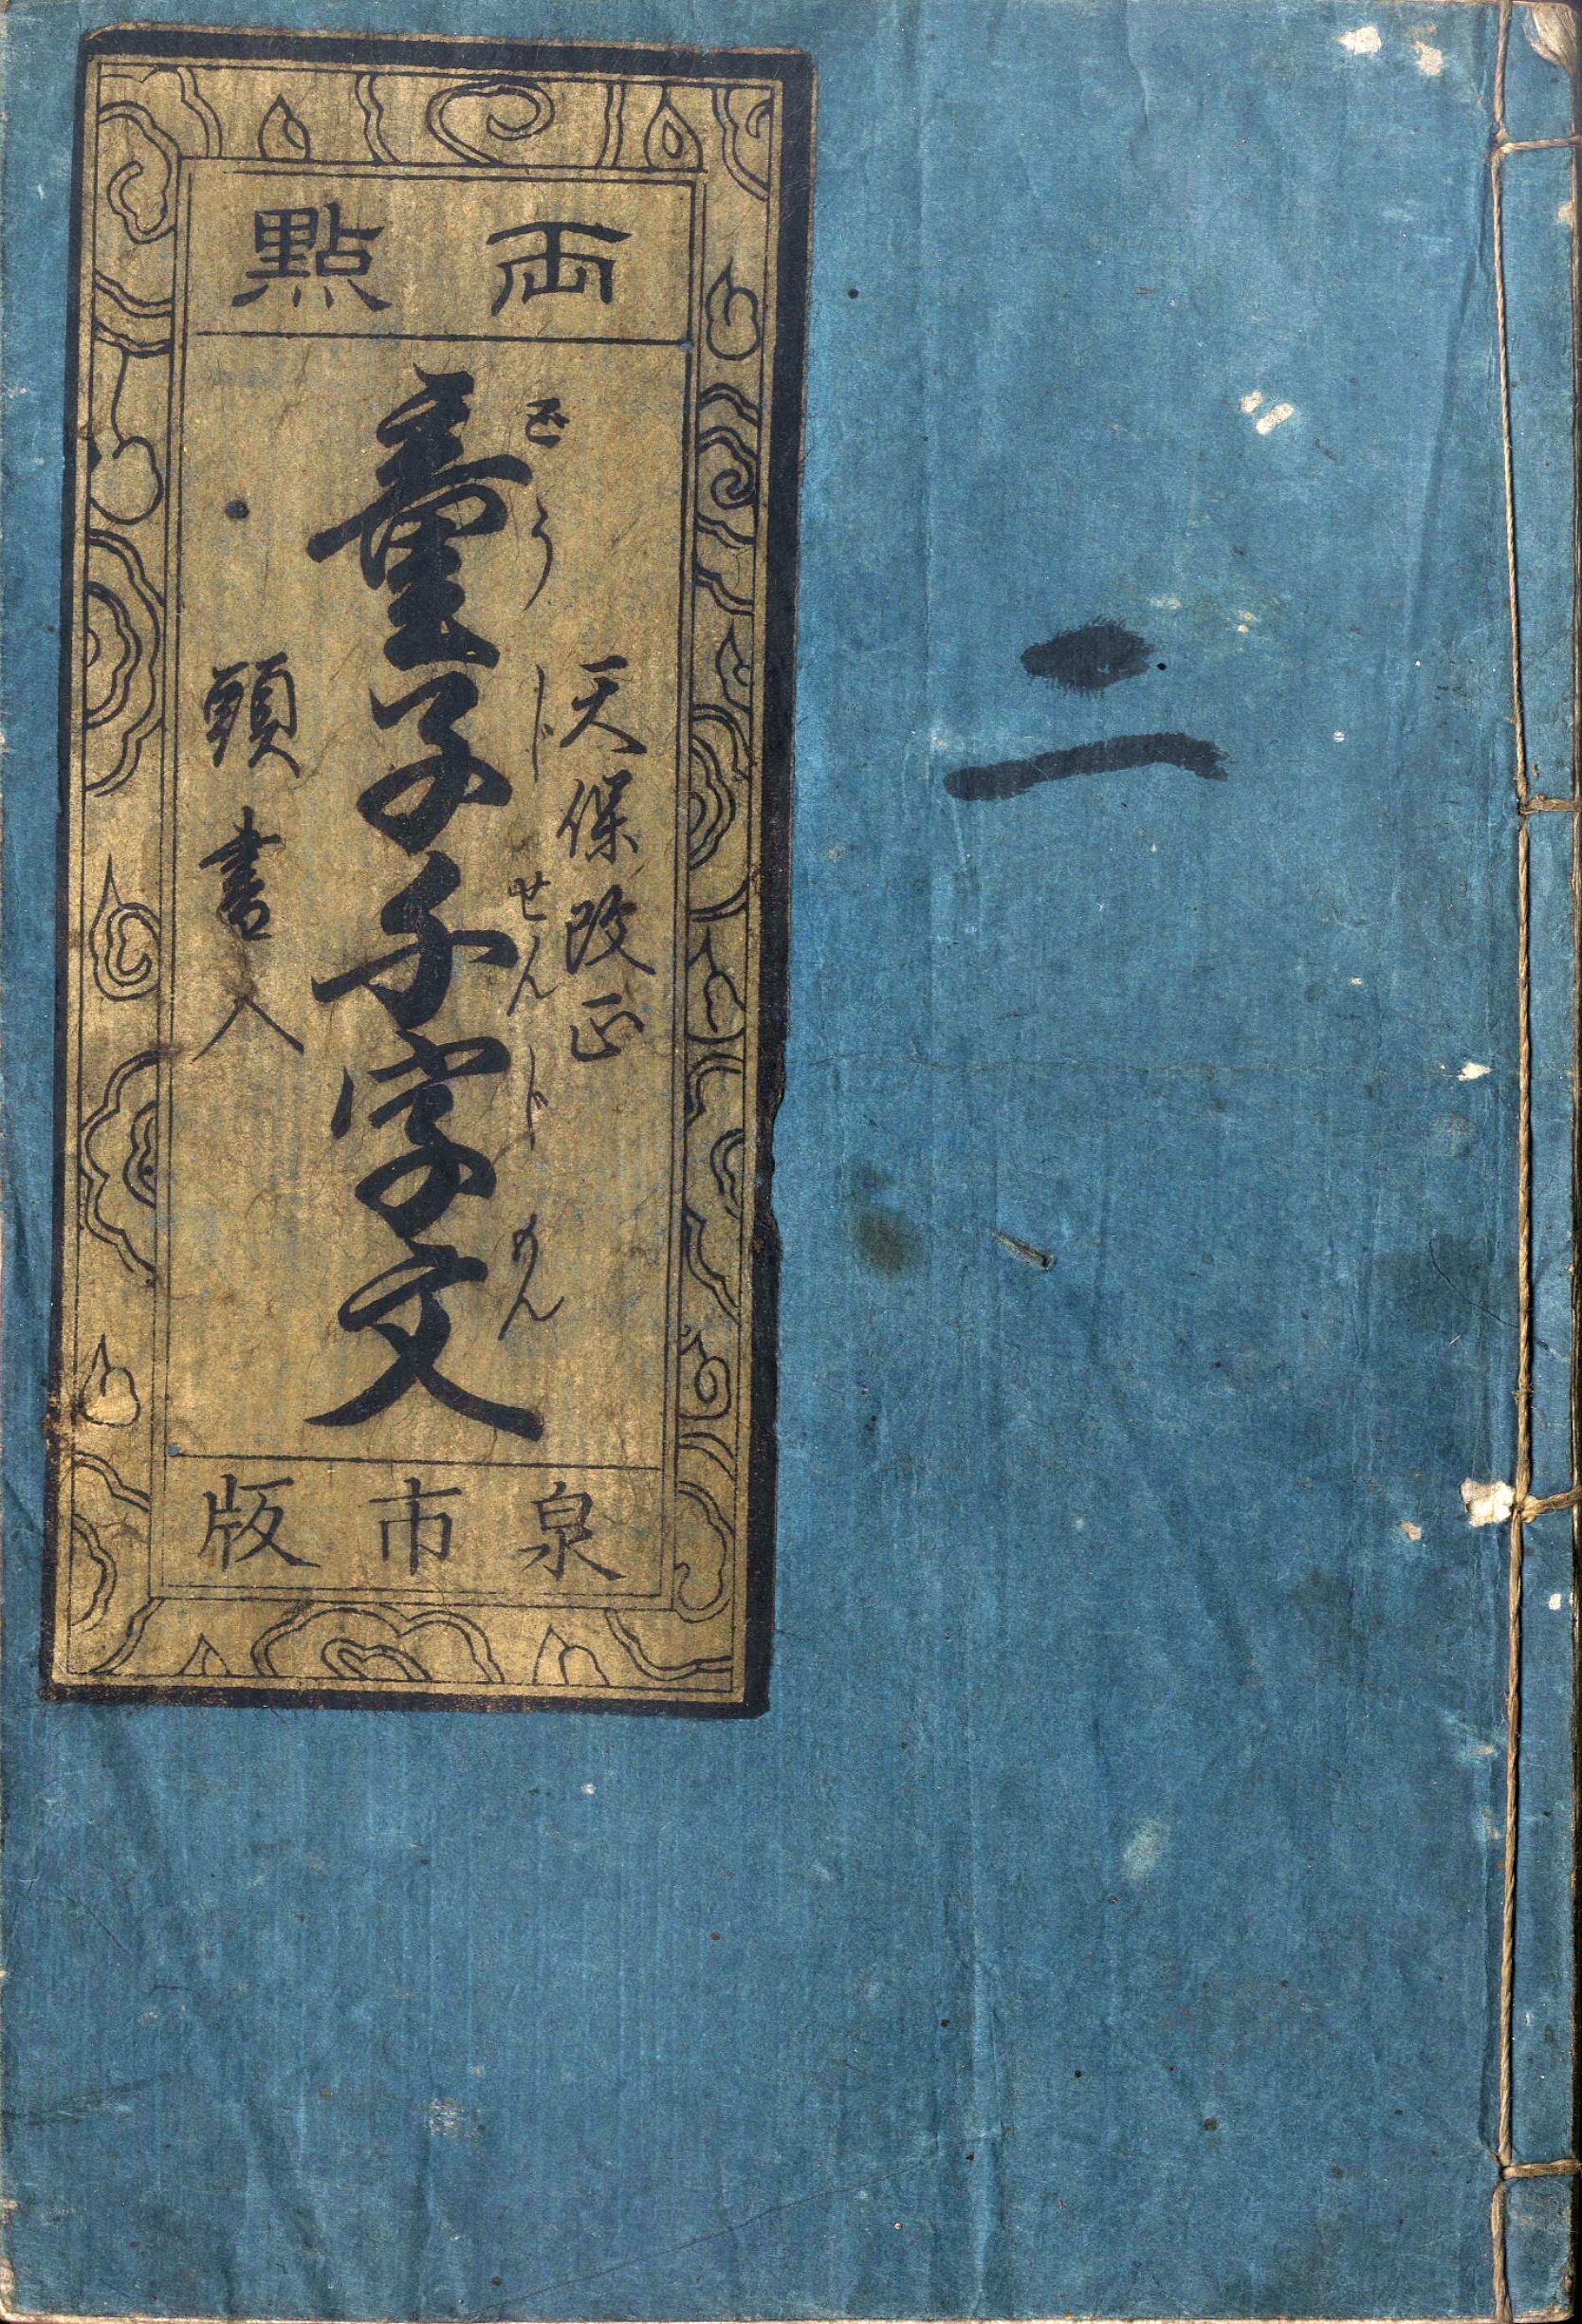 二
両點
天保改正
どうじせんじもん
童子千字文
頭書入
泉市版